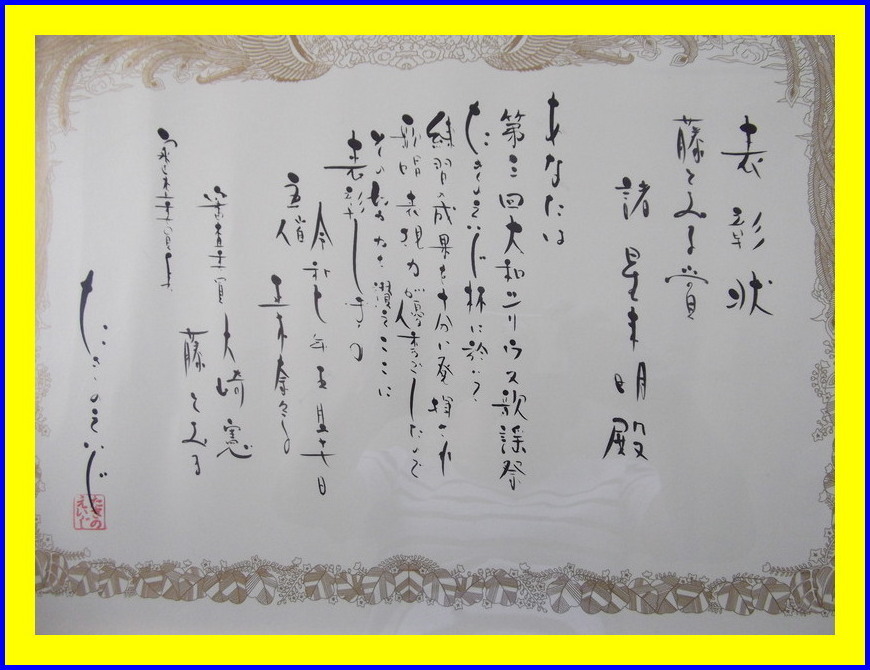 表彰状
藤とみる賞
諸星末明殿
あなたは
第三回大和シリウス歌謡祭
たきのえいじ杯に於いて
練習の成果を十分に発揮され
歌唱表現力が優秀でしたので
その努力を讃えここに
表彰します
令和七年五月 日
主催
審査委員 大崎憲
藤とみる
審査委員長
たきのえいじ
たきのえいじ